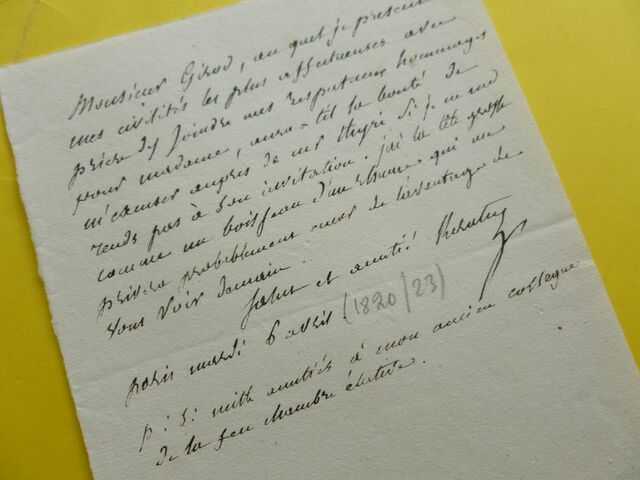 Monsieur Girod, au quel je présente
mes civilités les plus affectueuses avec
prière d'y joindre mes respectueux hommages
pour madame, aura-t-il la bonté de
m'excuser auprès de mr si je ne me
rends pas à son invitation. j'ai la tête grosse
comme un boisseau d'un rhume qui me
privera probablement aussi de l'avantage de
vous voir demain.
Salut et amitié Kératry
paris mardi 6 avril (1820/23)
p: s: mille amitiés à mon ancien collègue
de la feu chambre élective.